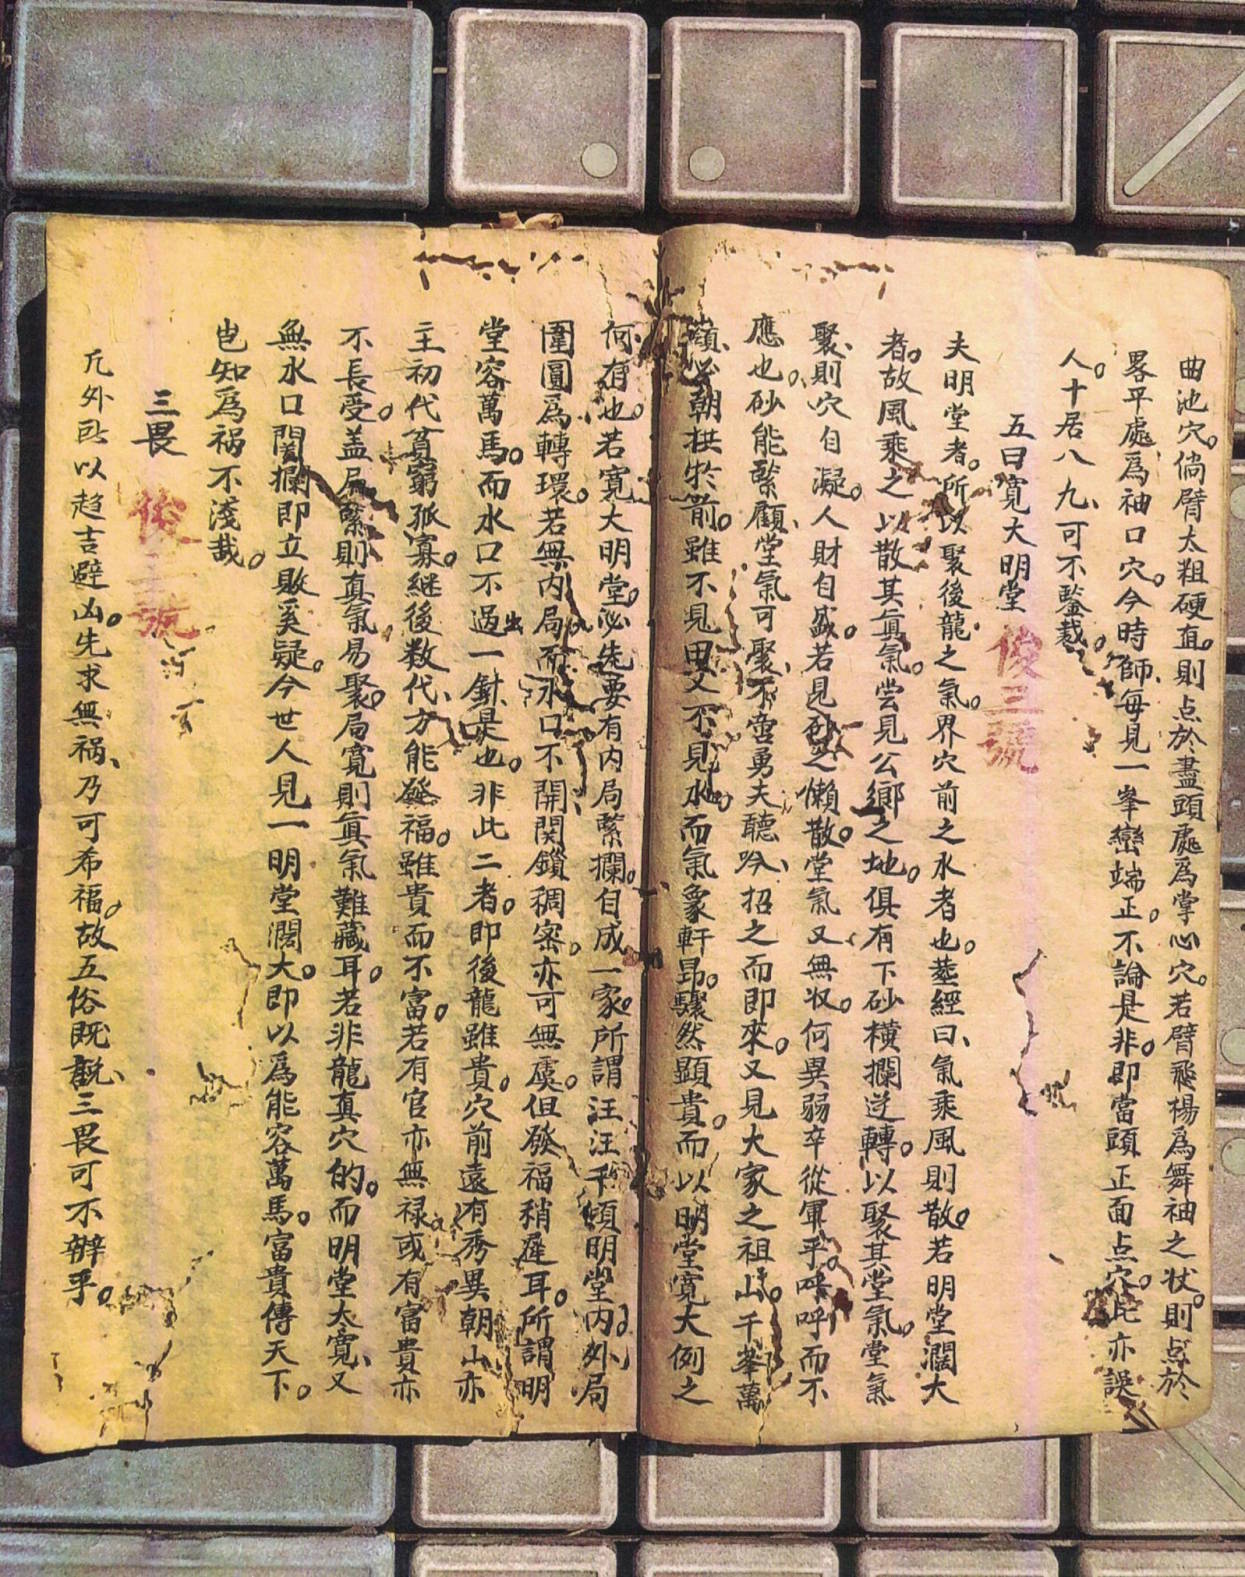 曲池穴。倘臂太粗硬直。則点於盡頭處爲掌心穴。若臂飛楊爲舞袖之状。則点於
畧平處爲袖口穴。今時師每見一峯巒端正。不論是非。即當頭正面点穴。此亦誤
人。十居八九、可不鑒哉。
五曰寛大明堂 俊三號
夫明堂者。所以聚後龍之氣。界穴前之水者也。塟經曰、氣乘風則散。若明堂濶大
者。故風乘之以散其眞氣。尝見公鄉之地。俱有下砂横攔逆轉。以聚其堂氣。堂氣
聚、則穴自凝。人財自盛。若見砂之懶散。堂氣又無收。何異弱卒從軍乎。呼呼而不
應也。砂能緊顧、堂氣可聚、不啻勇夫聽吟、招之而即來。又見大家之祖山。千峯萬
嶺必朝拱於前。雖不見田又不見水。而氣象軒昂。驟然顯貴。而以明堂寛大例之
何有也。若寛大明堂。必先要有内局緊攔。自成一家。所謂汪汪千頃明堂、内外局
圍圓爲轉環。若無内局。而水口不開関鎖稠密。亦可無虞。但發福稍遲耳。所謂明
堂容萬馬。而水口不過一針是也。非此二者。即後龍雖貴。穴前遠有秀異朝山。亦
主初代貧窮孤寡。継後数代、方能發福。雖貴而不富。若有官亦無禄或有富貴亦
不長受。盖局緊則真氣易聚。局寛則眞氣難藏耳。若非龍真穴的。而明堂太寛、又
無水口関攔即立敗奚疑。今世人見一明堂濶大。即以爲能容萬馬。富貴傳天下。
岂知爲祸不淺哉。
三畏 俊三號
凡外卧以趋吉避凶。先求無祸、乃可希福。故五俗既説、三畏可不辨乎。